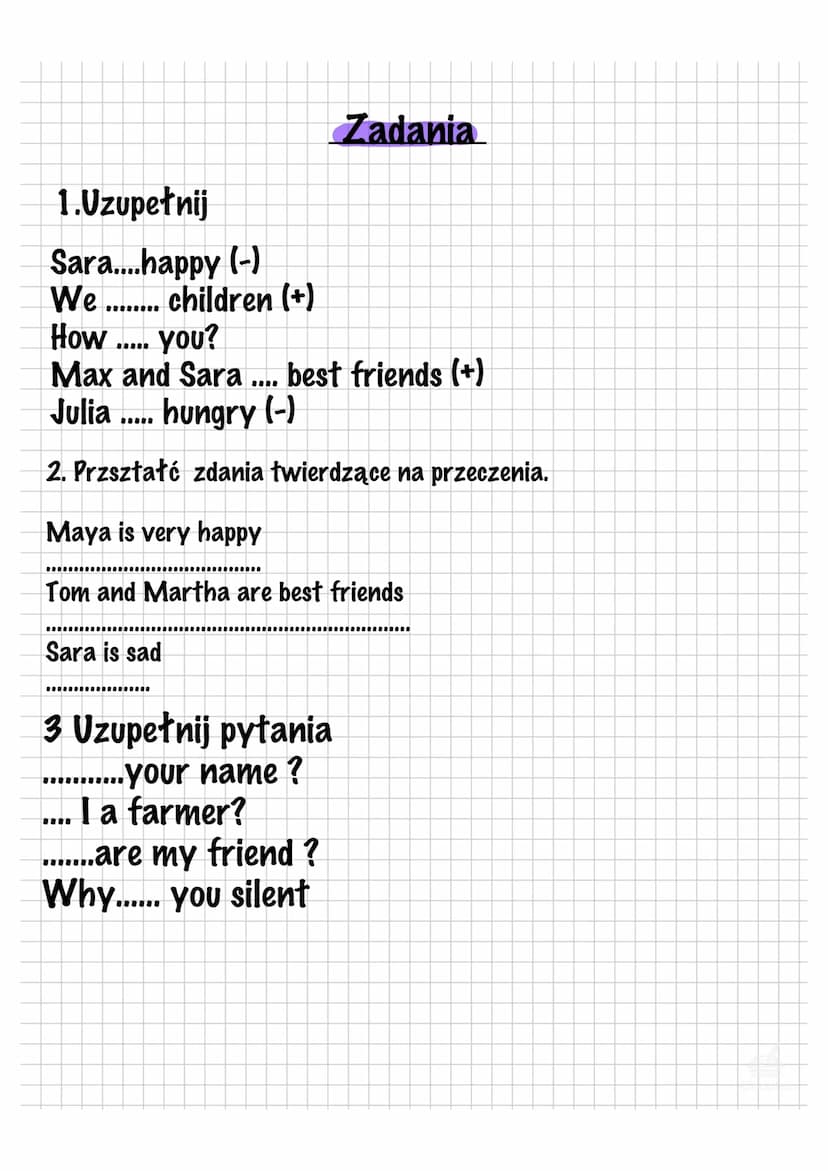 Zadania
1.Uzupełnij
Sara....happy (-)
We ........ children (+)
How ..... you?
Max and Sara .... best friends (+)
Julia ..... hungry (-)
2. Przształć zdania twierdzące na przeczenia.
Maya is very happy
.......................................
Tom and Martha are best friends
..................................................................
Sara is sad
...................
3 Uzupełnij pytania
...........your name ?
.... I a farmer?
.......are my friend ?
Why...... you silent